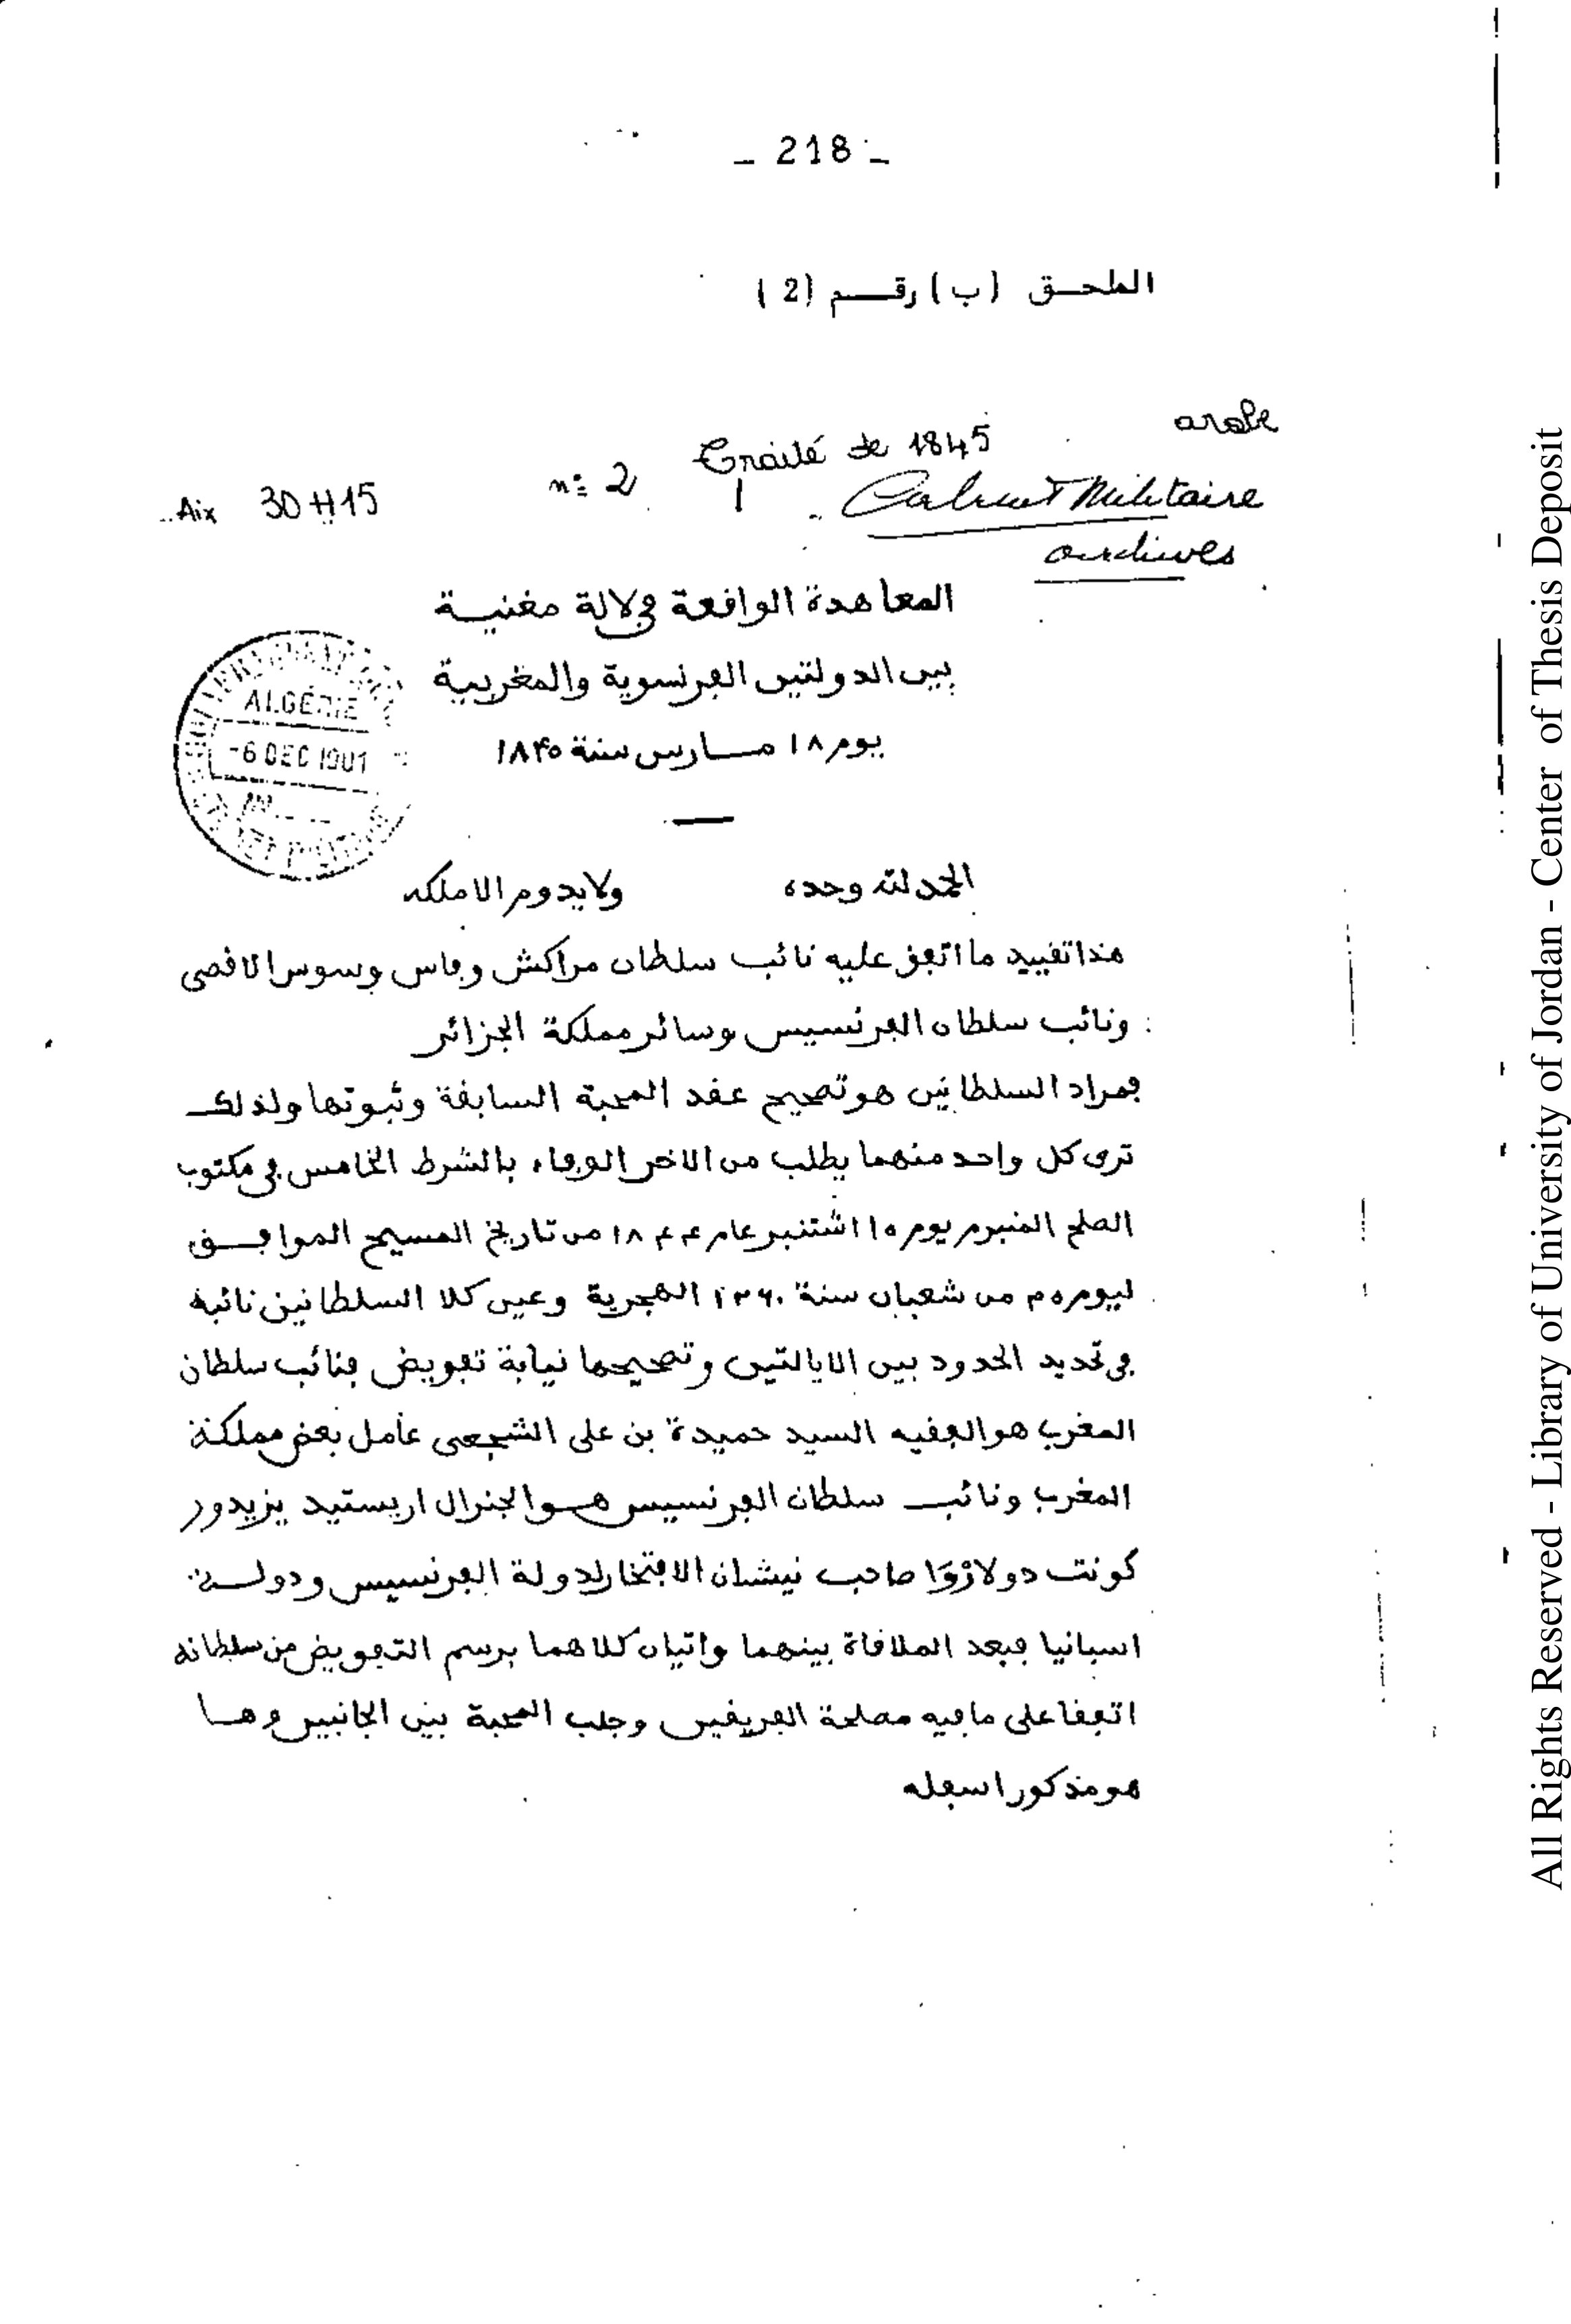 - 218 -
الملحـق (ب) رقـــم (2)
arabe
Traité de 1845
nº 2
Cabinet Militaire
Aix 30 H 15
archives
المعاهدة الواقعة في لالة مغنيـة
بين الدولتين الفرنسوية والمغربية
يوم ١٨ مـــارس سنة ١٨٤٥
ALGÉRIE
-6 DEC 1901
الحمد لله وحده ولا يدوم الا ملكه
هذا تقييد ما اتفق عليه نائب سلطان مراكش وفاس وسوس الاقصى
ونائب سلطان الفرنسيس وسائر مملكة الجزائر
فمراد السلطانين هو تصحيح عقد المحبة السابقة وثبوتها ولذلك
ترى كل واحد منهما يطلب من الاخر الوفاء بالشرط الخامس في مكتوب
الصلح المنبرم يوم ١٥ اشتنبر عام ١٨٤٤ من تاريخ المسيح الموافـــق
ليوم ٢٥ من شعبان سنة ١٢٦٠ الهجرية وعين كلا السلطانين نائبه
في تحديد الحدود بين الايالتين وتصحيحها نيابة تفويض فنائب سلطان
المغرب هو الفقيه السيد حميدة بن على الشجعى عامل بعض مملكة
المغرب ونائب سلطان الفرنسيس هـــو الجنرال اريستيد يزيدور
كونت دولاڒوا صاحب نيشان الافتخار لدولة الفرنسيس ودولـــة
اسبانيا فبعد الملاقاة بينهما واتيان كلاهما برسم التفويض من سلطانه
اتفقا على ما فيه مصلحة الفريقين وجلب المحبة بين الجانبين وهـــا
هو مذكور اسفله
All Rights Reserved - Library of University of Jordan - Center of Thesis Deposit